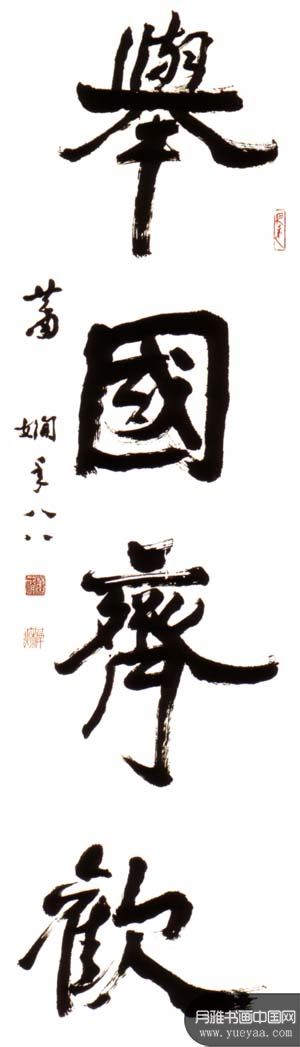 舉國齊歡
蕭嫻年八八
月雅书画中国网
www.yueyaa.com